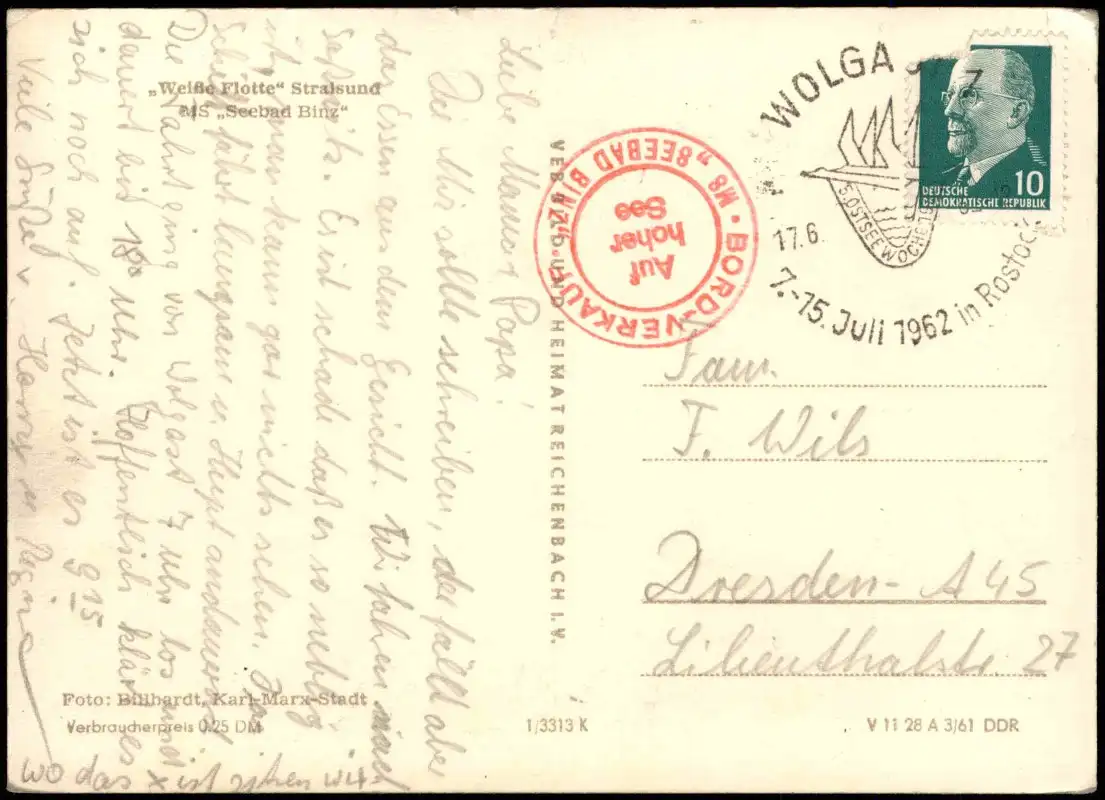 „Weiße Flotte“ Stralsund
MS „Seebad Binz“
Liebe Mama, Papa!
Die Mir sollte schreiben, der fällt aber
das Essen aus dem Gesicht. Wir fahren nach
Saßnitz. Es ist schade daß es so neblig
ist, man kann gar nichts sehen. Das
Schiff fährt langsam u. Hupt andauernd
Die Fahrt ging von Wolgast 7 Uhr los und
dauert bis 18⁰⁰ Uhr. Hoffentlich klärt es
sich noch auf. Jetzt ist es 9¹⁵
Viele Grüße v. Horst u. Regin
wo das x ist sitzen wir
Foto: Billhardt, Karl-Marx-Stadt
Verbraucherpreis 0,25 DM
VEB BILD UND HEIMAT REICHENBACH I. V.
BORD-VERKAUF • MS „SEEBAD BINZ“ •
Auf
hoher
See
WOLGAST
17.6.
5. OSTSEEWOCHE
7.-15. Juli 1962 in Rostock
DEUTSCHE
DEMOKRATISCHE REPUBLIK
10
Fam.
F. Wils
Dresden - A 45
Lilienthalstr. 27
1/3313 K
V 11 28 A 3/61 DDR